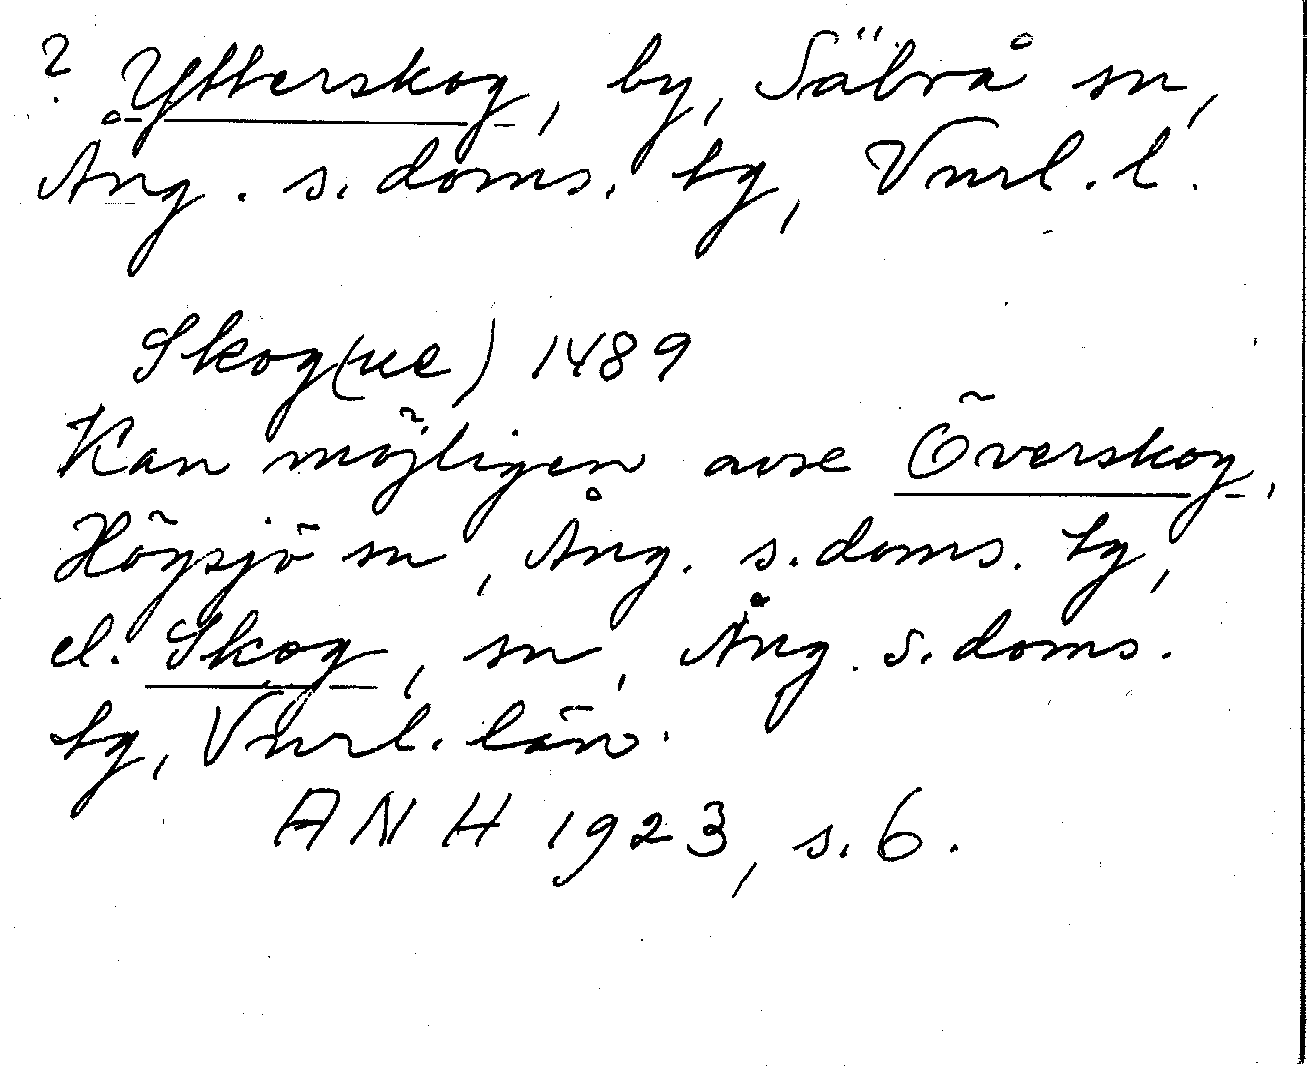 ? Ytterskog, by, Säbrå sn,
Ång. s. doms. tg, Vnrl. l.
Skog(ue) 1489
Kan möjligen avse Överskog,
Högsjö sn, Ång. s. doms. tg,
el. Skog, sn, Ång. s. doms.
tg, Vnrl. län.
ANH 1923, s. 6.